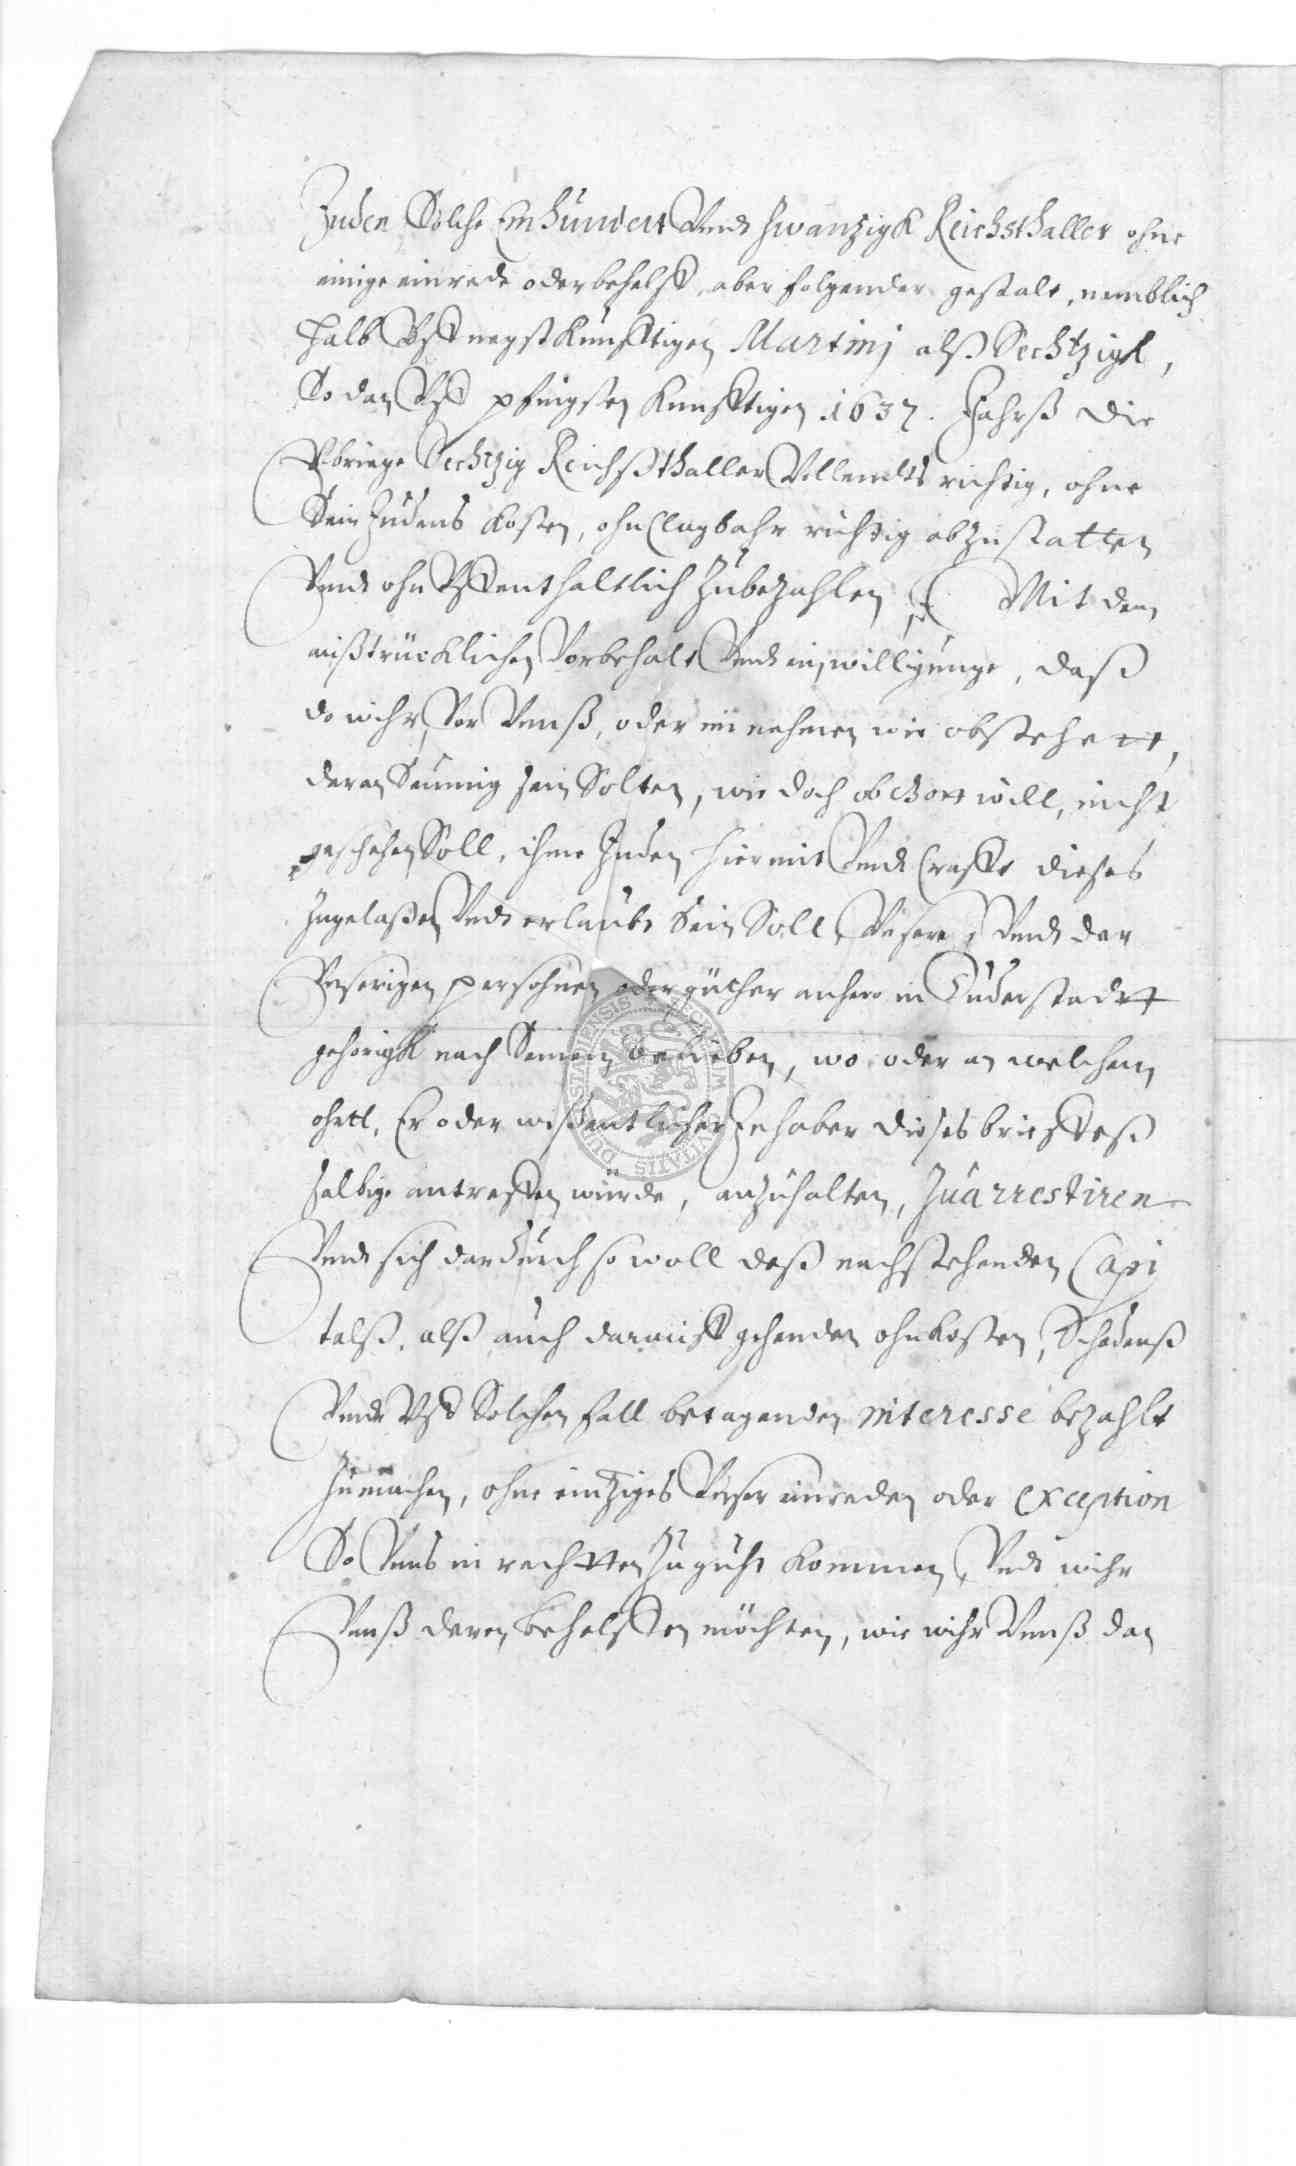 Juden Solche Einhundert Vnd zwanzigk Reichsthaller ohne
einige einrede oder behelff, aber folgender gestalt, nemblich
halb Vff negstkunfftigen Martinj alß Sechtzigk,
So dan Vff pfingsten kunfftigen .1637. Jahrß die
Vbriege Sechtzig Reichßthaller Vollendts richtig, ohne
Sein Judens kosten, ohnclagbahr richtig abzustatten
Vnd ohn Vffenthaltlich zubezahlen, Mit dem
außtrücklichen Vorbehalt Vnd einwilligunge, daß
do wihr, Vor Vnnß, oder im nahmen wie obstehett,
daran Seumig sein Solten, wie doch ob Gott will, nicht
geschehen Soll, ihme Juden hiermit Vnd Crafft dieses
zugelaßen Vnd erlaubt Sein Soll, Vnsere, Vnd der
Vnserigen persohnen oder güther anhero in Duderstadtt
gehorigk nach Seinem belieben, wo oder an welchem
ohrtt, Er oder wißentlicher Inhaber dieses brieffeß
selbige antreffen würde, anzuhalten, Zuarrestiren
Vnd sich dardurch so woll deß nachstehenden Capi
talß, alß auch darauff gehenden ohnkosten, Schadenß
Vnd Vff Solchen fall betagenden interesse bezahlt
Zumachen, ohne einziges Vnser einreden oder exception
So Vnns in rechtten zu guht kommen, Vnd wihr
Vnnß deren behelffen möchten, wie wihr Vnnß dan
SECRETUM CIVITATIS DUDERSTADIENSIS